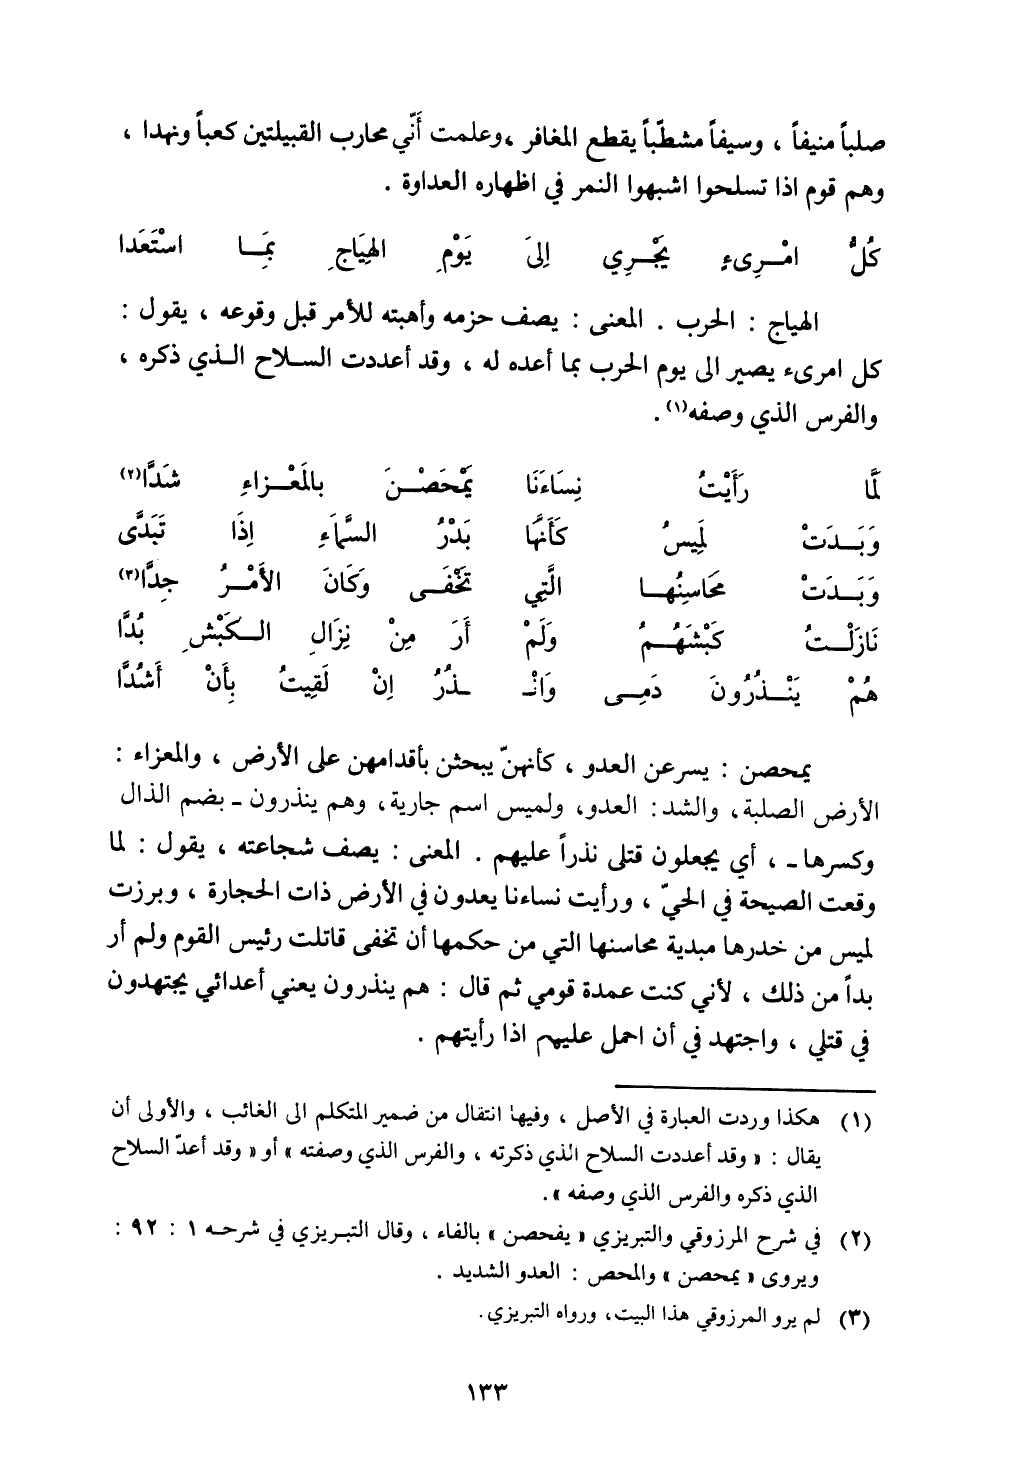 صلباً منيفاً ، وسيفاً مشطّباً يقطع المغافر ، وعلمت أنّي محارب القبيلتين كعباً ونهدا ،
وهم قوم اذا تسلحوا اشبهوا النمر في اظهاره العداوة .
كُلُّ امْرِىءٍ يَجْرِي إِلىَ يَوْمِ الهِيَاجِ بِمَا اسْتَعَدا
الهياج : الحرب . المعنى : يصف حزمه وأهبته للأمر قبل وقوعه ، يقول :
كل امرىء يصير الى يوم الحرب بما أعده له ، وقد أعددت السلاح الذي ذكره ،
والفرس الذي وصفه(١) .
لَمَّا رَأَيْتُ نِسَاءَنَا يَمْحَصْنَ بالمَعْزاءِ شَدَّا(٢)
وَبَدَتْ لَمِيسُ كَأَنَّها بَدْرُ السَّمَاءِ إِذَا تَبَدَّى
وَبَدَتْ مَحَاسِنُها الَّتِي تَخْفَى وَكَانَ الأَمْرُ جِدَّا(٣)
نَازَلْتُ كَبْشَهُمُ وَلَمْ أَرَ مِنْ نِزَالِ الكَبْشِ بُدَّا
هُمْ يَنْذُرُونَ دَمِى وَانْـ ـذُرُ اِنْ لَقِيتُ بِأَنْ أَشُدَّا
يمحصن : يسرعن العدو ، كأنهنّ يبحثن بأقدامهن على الأرض ، والمعزاء :
الأرض الصلبة، والشد: العدو، ولميس اسم جارية، وهم ينذرون - بضم الذال
وكسرها - ، أي يجعلون قتلى نذراً عليهم . المعنى : يصف شجاعته ، يقول : لما
وقعت الصيحة في الحيّ ، ورأيت نساءنا يعدون في الأرض ذات الحجارة ، وبرزت
لميس من خدرها مبدية محاسنها التي من حكمها أن تخفى قاتلت رئيس القوم ولم أر
بداً من ذلك ، لأني كنت عمدة قومي ثم قال : هم ينذرون يعني أعدائي يجتهدون
في قتلي ، واجتهد في أن احمل عليهم اذا رأيتهم .
(١) هكذا وردت العبارة في الأصل ، وفيها انتقال من ضمير المتكلم الى الغائب ، والأولى أن
يقال : « وقد أعددت السلاح الذي ذكرته ، والفرس الذي وصفته » أو « وقد أعدّ السلاح
الذي ذكره والفرس الذي وصفه ».
(٢) في شرح المرزوقي والتبريزي « يفحصن » بالفاء ، وقال التبريزي في شرحه ١ : ٩٢ :
ويروى « يمحصن » والمحص : العدو الشديد .
(٣) لم يرو المرزوقي هذا البيت، ورواه التبريزي.
١٣٣